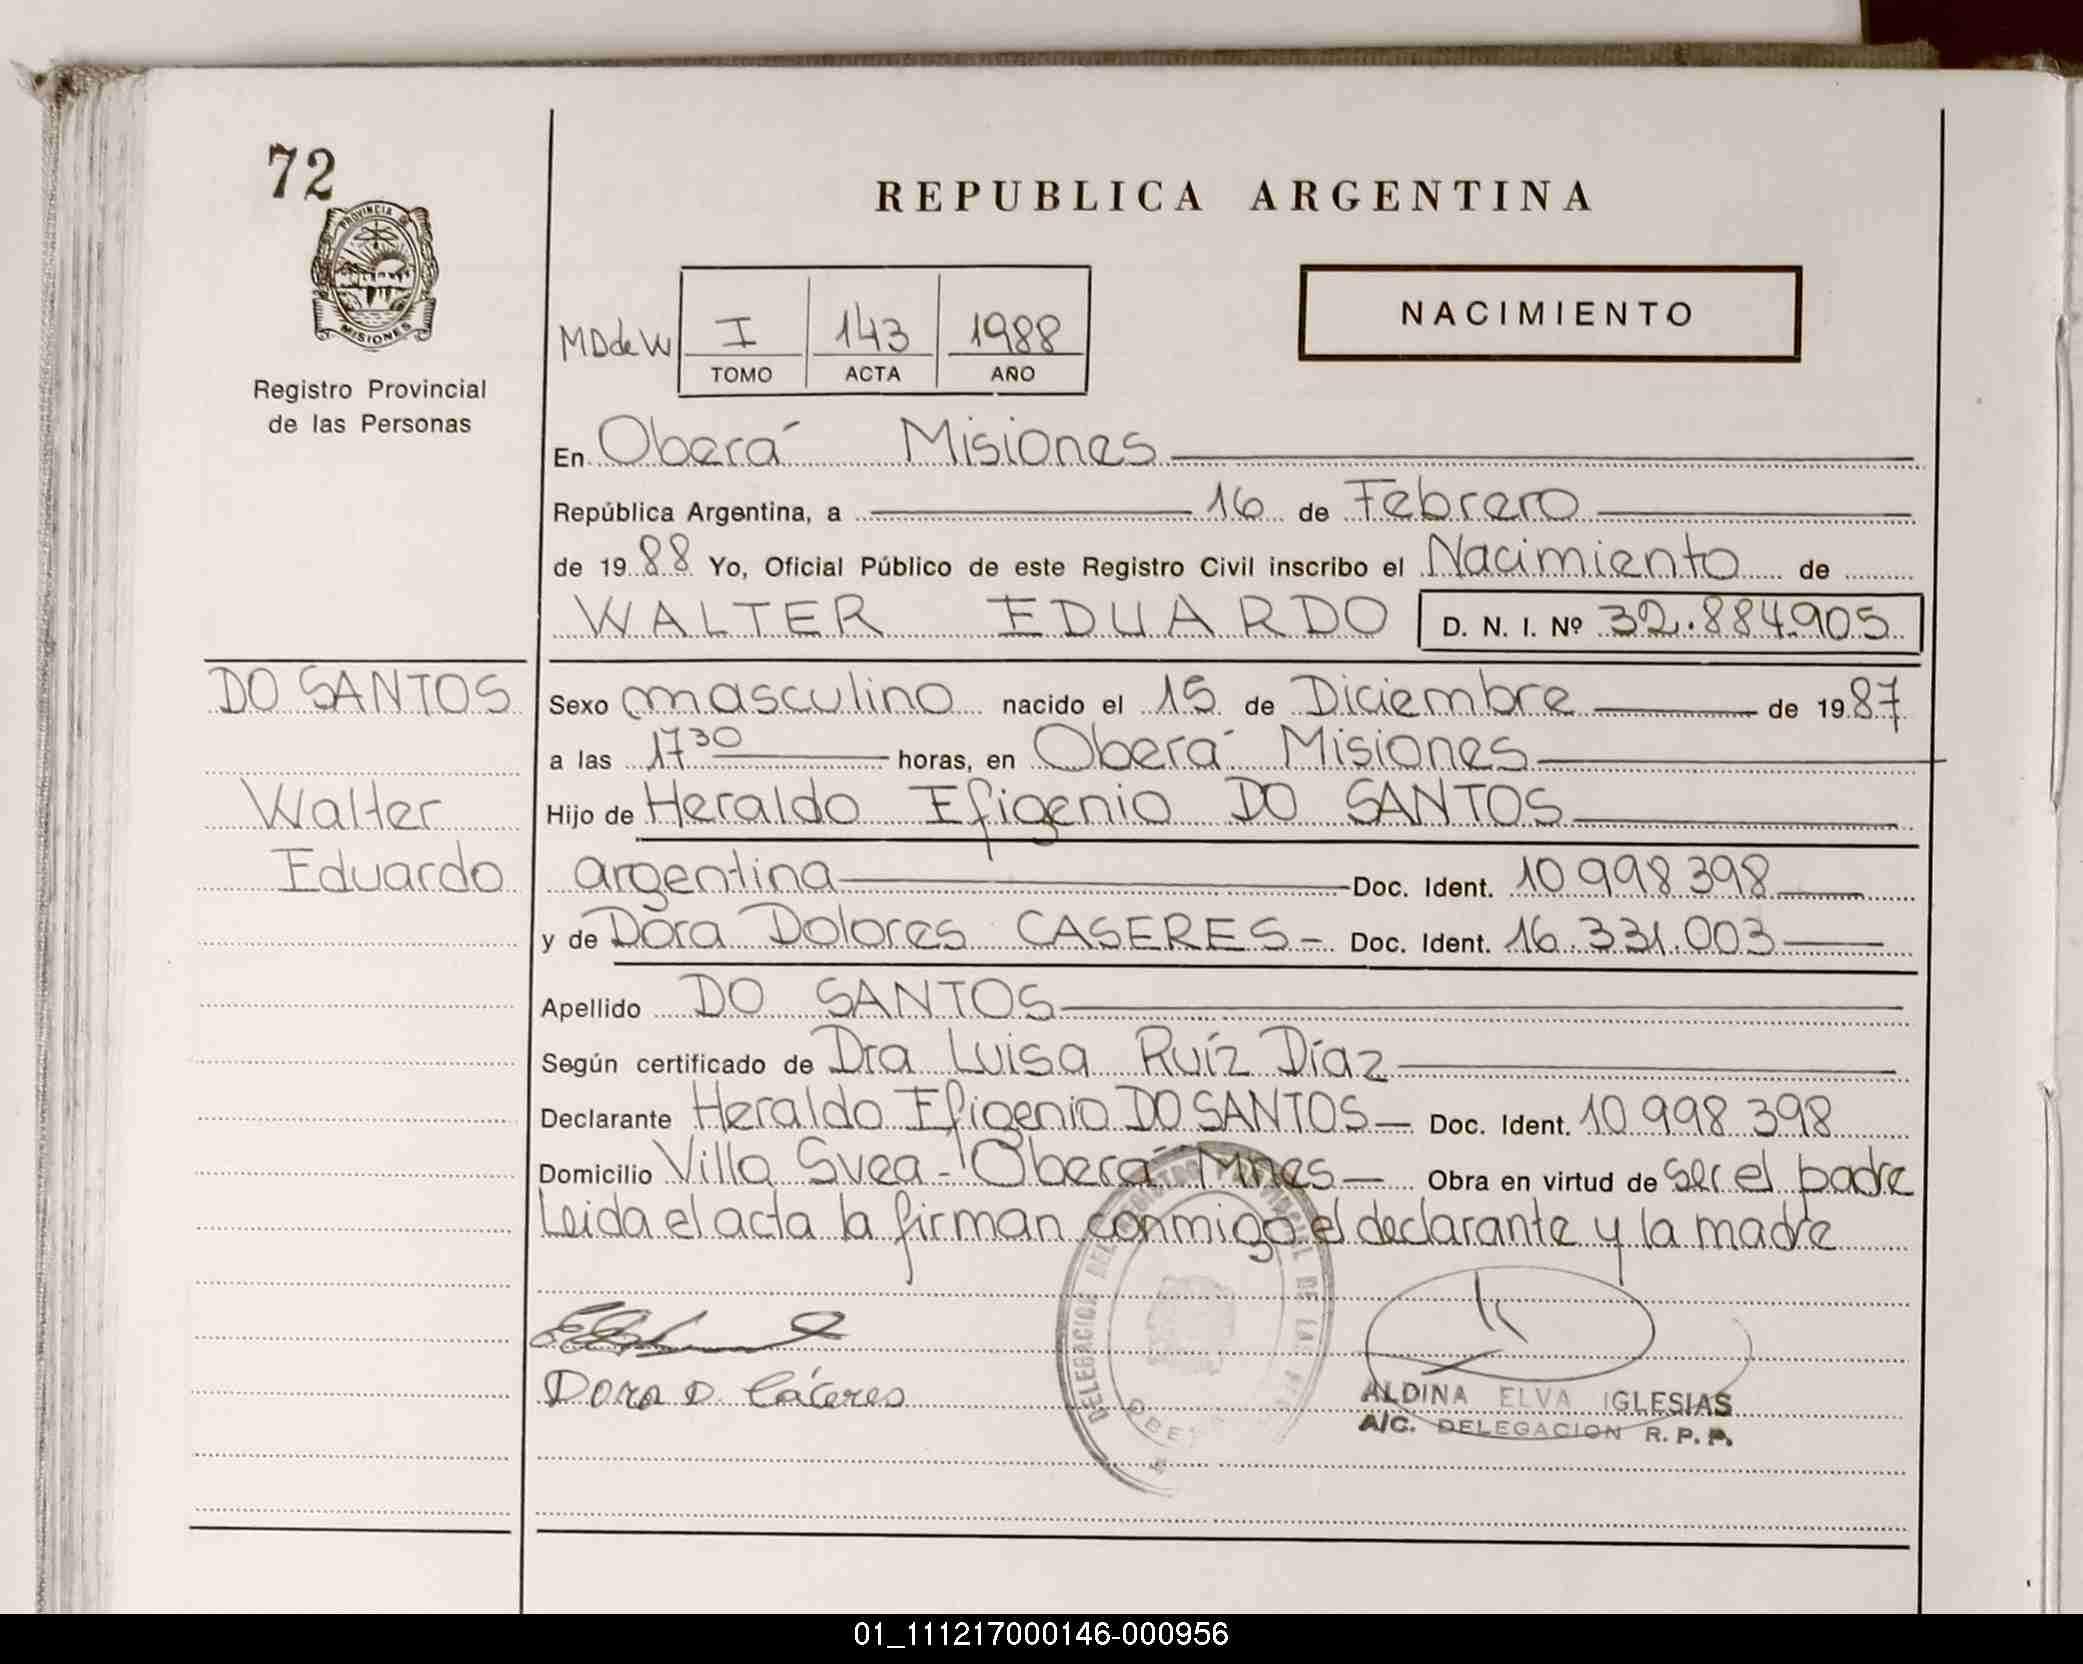 72
PROVINCIA DE
MISIONES
Registro Provincial
de las Personas
REPUBLICA ARGENTINA
NACIMIENTO
MDdeW I 143 1988
TOMO ACTA AÑO
En Oberá Misiones
República Argentina, a 16 de Febrero
de 1988 Yo, Oficial Público de este Registro Civil inscribo el Nacimiento de
WALTER EDUARDO D. N. I. Nº 32.884.905
DO SANTOS
Walter
Eduardo
Sexo masculino nacido el 15 de Diciembre de 1987
a las 17 30 horas, en Oberá Misiones
Hijo de Heraldo Efigenio DO SANTOS
argentina Doc. Ident. 10.998.398
y de Dora Dolores CASERES - Doc. Ident. 16.331.003
Apellido DO SANTOS
Según certificado de Dra Luisa Ruíz Díaz
Declarante Heraldo Efigenio DO SANTOS — Doc. Ident. 10.998.398
Domicilio Villa Svea - Oberá Mnes — Obra en virtud de ser el padre
Leida el acta la firman conmigo el declarante y la madre
Dora D. Cáceres
DELEGACION DEL REGISTRO PROVINCIAL DE LAS
OBE
ALDINA ELVA IGLESIAS
A/C. DELEGACION R. P. P.
01_111217000146-000956